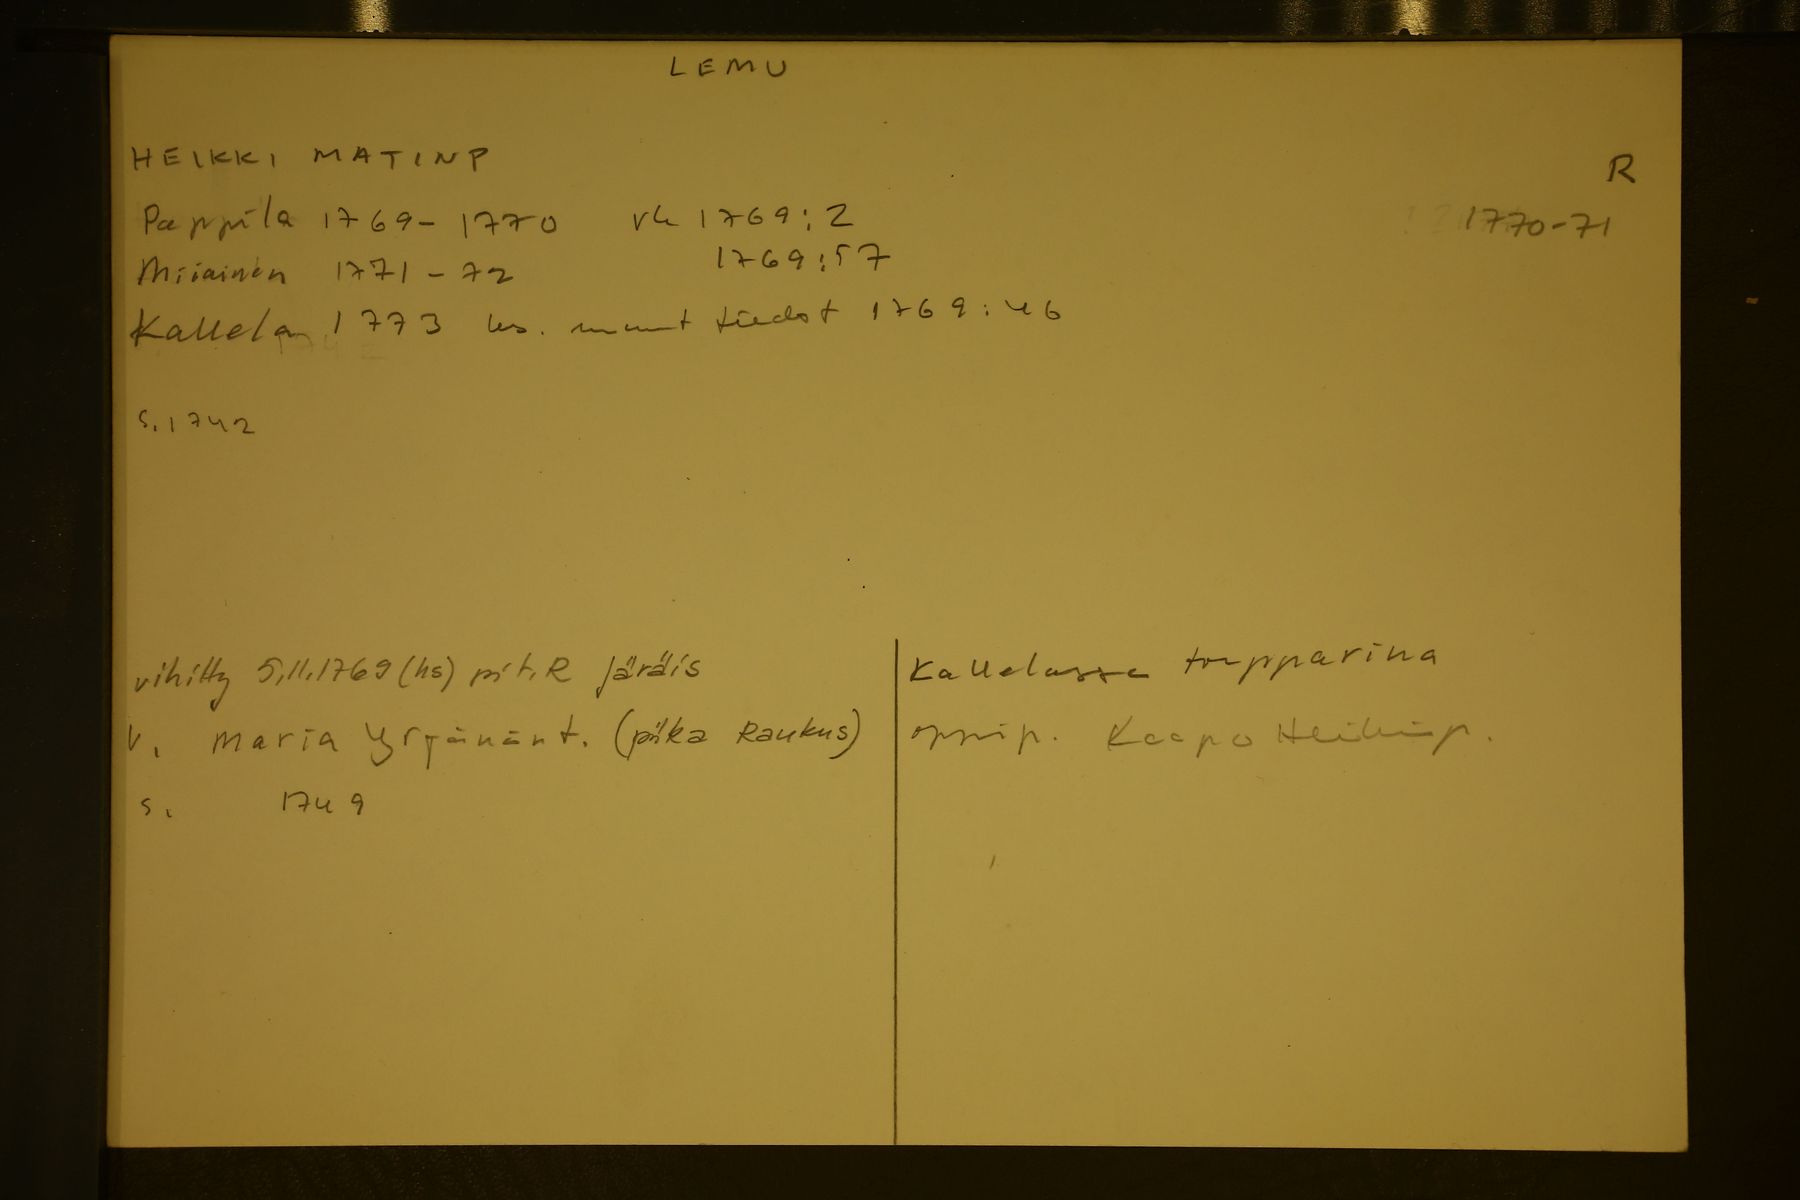 LEMU
HEIKKI MATINP
R
Pappila 1769-1770 vk 1769:2
1770-71
Miiainen 1771-72 1769:57
Kallela 1773 ks. muut tiedot 1769:46
s. 1742
vihitty 5.11.1769 (ks) pit. R Järäis
v. Maria Yrjänänt. (piika Raukus)
s. 1749
Kallelassa torpparina
oppip. Kaapo Heikinp.